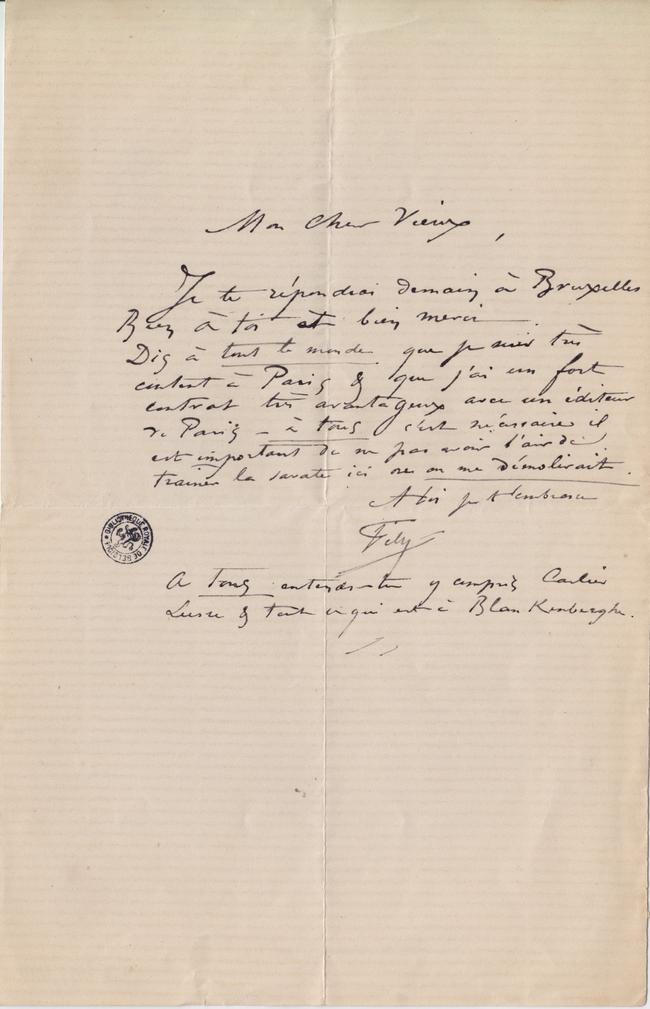 Mon Cher Vieux,
Je te répondrai demain à Bruxelles
Bien à toi et bien merci
Dis à tout le monde que je suis très
content à Paris & que j'ai un fort
contrat très avantageux avec un éditeur
de Paris – à tous c'est nécessaire il
est important de ne pas avoir l'air de
trainer la savate ici on me démolirait.
A toi je t'embrasse
Fély
BIBLIOTHÈQUE ROYALE DE BELGIQUE
A tous entends-tu y compris Carlier
& tout ce qui est à Blankenberghe.